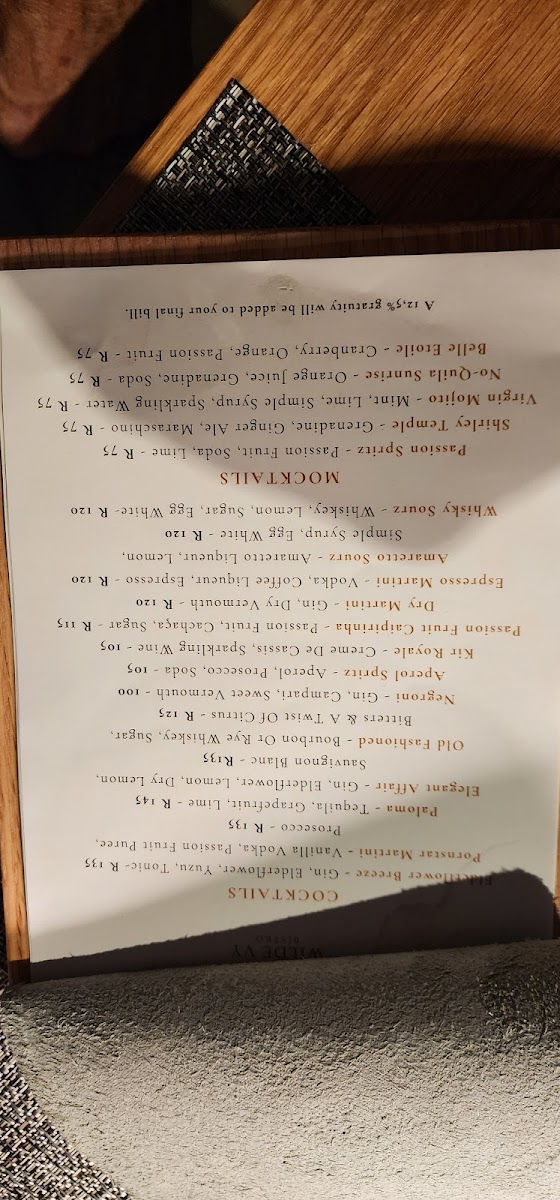 WILDE VY
BISTRO
COCKTAILS
Elderflower Breeze - Gin, Elderflower, Yuzu, Tonic- R 135
Pornstar Martini - Vanilla Vodka, Passion Fruit Puree,
Prosecco - R 135
Paloma - Tequila, Grapefruit, Lime - R 145
Elegant Affair - Gin, Elderflower, Lemon, Dry Lemon,
Sauvignon Blanc - R135
Old Fashioned - Bourbon Or Rye Whiskey, Sugar,
Bitters & A Twist Of Citrus - R 125
Negroni - Gin, Campari, Sweet Vermouth - 100
Aperol Spritz - Aperol, Prosecco, Soda - 105
Kir Royale - Creme De Cassis, Sparkling Wine - 105
Passion Fruit Caipirinha - Passion Fruit, Cachaça, Sugar - R 115
Dry Martini - Gin, Dry Vermouth - R 120
Espresso Martini - Vodka, Coffee Liqueur, Espresso - R 120
Amaretto Sourz - Amaretto Liqueur, Lemon,
Simple Syrup, Egg White - R 120
Whisky Sourz - Whiskey, Lemon, Sugar, Egg White- R 120
MOCKTAILS
Passion Spritz - Passion Fruit, Soda, Lime - R 75
Shirley Temple - Grenadine, Ginger Ale, Maraschino - R 75
Virgin Mojito - Mint, Lime, Simple Syrup, Sparkling Water - R 75
No-Quila Sunrise - Orange Juice, Grenadine, Soda - R 75
Belle Etoile - Cranberry, Orange, Passion Fruit - R 75
A 12,5% gratuity will be added to your final bill.